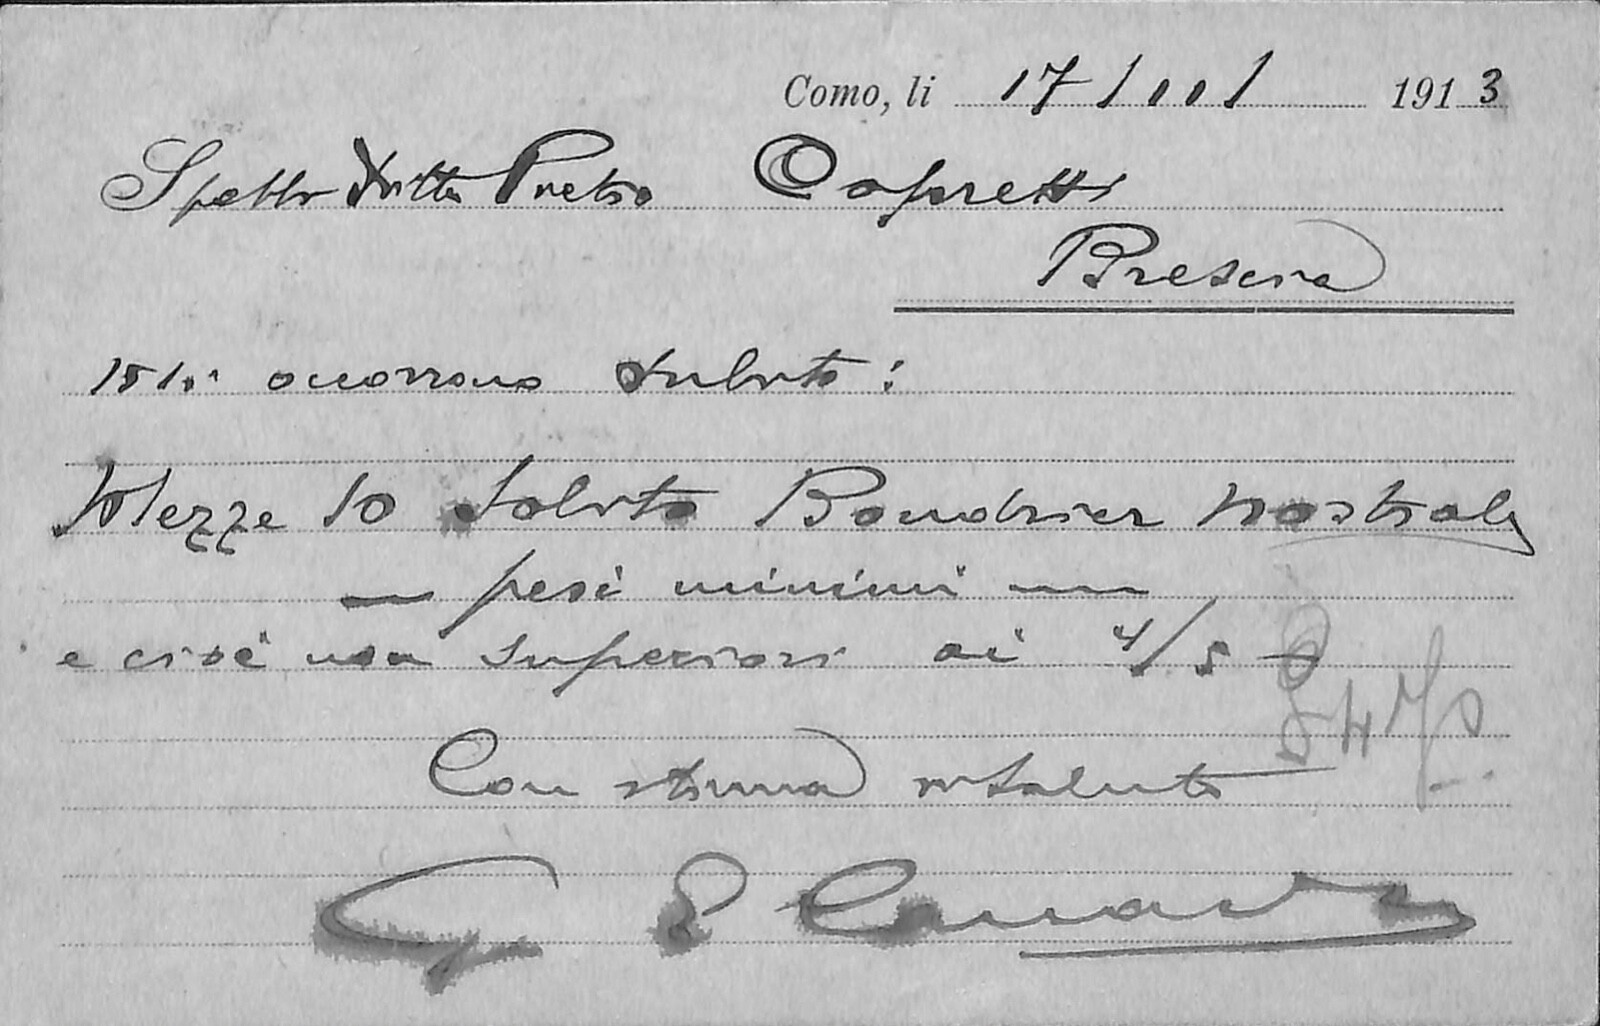 Como, li 17/III/ 1913
Spett Ditta Pietro Capretti
Brescia
occorrono subito:
Mezze 10 solito Baudrier nostrale
— pesi minimi —
e cioè non superiori ai 4/5
Con stima vi saluto
G